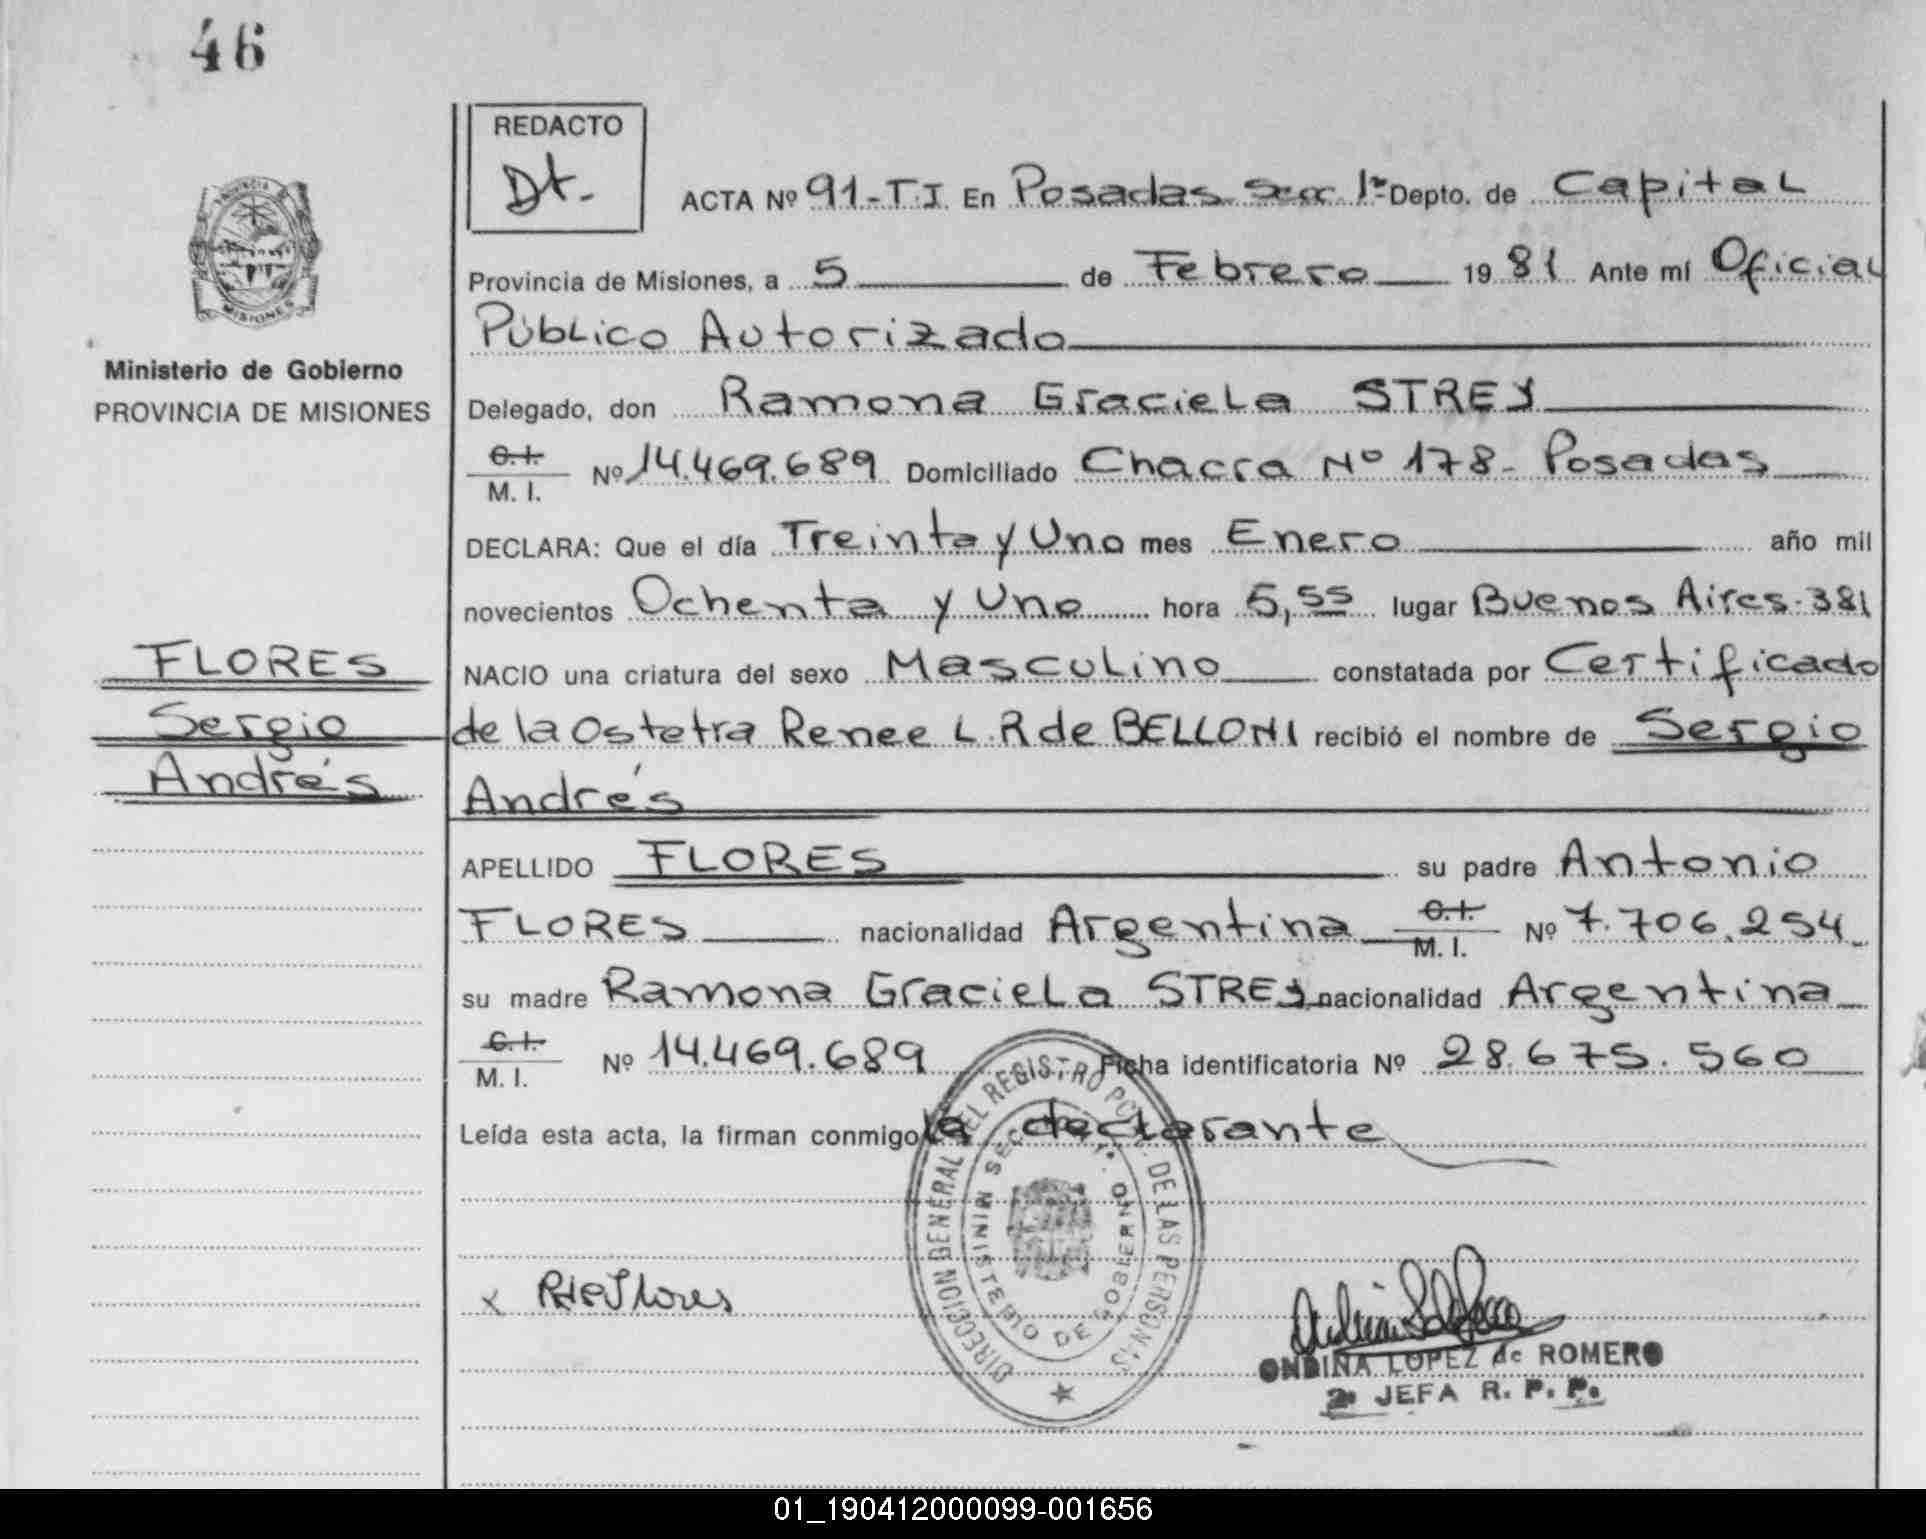 46
REDACTO
Dt.-
ACTA Nº 91-T.I En Posadas Secc. 1ª Depto. de Capital
PROVINCIA
MISIONES
Provincia de Misiones, a 5 de Febrero 1981 Ante mí Oficial
Público Autorizado
Ministerio de Gobierno
PROVINCIA DE MISIONES
Delegado, don Ramona Graciela STREY
C.I.
M. I. Nº 14.469.689 Domiciliado Chacra Nº 178- Posadas
DECLARA: Que el día Treinta y Uno mes Enero año mil
novecientos Ochenta y Uno hora 5,55 lugar Buenos Aires-381
FLORES
Sergio
Andrés
NACIO una criatura del sexo Masculino constatada por Certificado
de la Ostetra Renee L.R de BELLONI recibió el nombre de Sergio
Andrés
APELLIDO FLORES su padre Antonio
FLORES nacionalidad Argentina C.I. M. I. Nº 7.706.254
su madre Ramona Graciela STREY nacionalidad Argentina
C.I.
M. I. Nº 14.469.689 Ficha identificatoria Nº 28.675.560
Leída esta acta, la firman conmigo la declarante
DIRECCION GENERAL DEL REGISTRO PCIAL. DE LAS PERSONAS
MINISTERIO DE GOBIERNO
x Flores
ONDINA LOPEZ de ROMERO
2ª JEFA R. P. P.
01_190412000099-001656